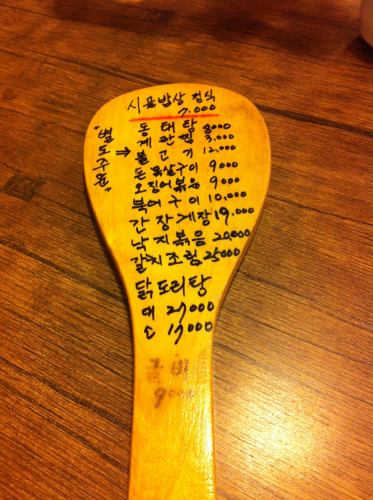 시골밥상 정식
7.000
"별도주문"
→
동태탕 8000
계란찜 3,000
불고기 12,000
돈목살구이 9000
오징어볶음 9000
북어구이 10,000
간장게장 19,000
낙지볶음 20,000
갈치조림 25000
닭도리탕
대 27000
소 17000